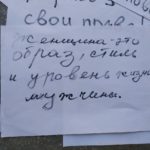 свои
женщина - это
образ, стиль
и уровень жизни
мужчины.